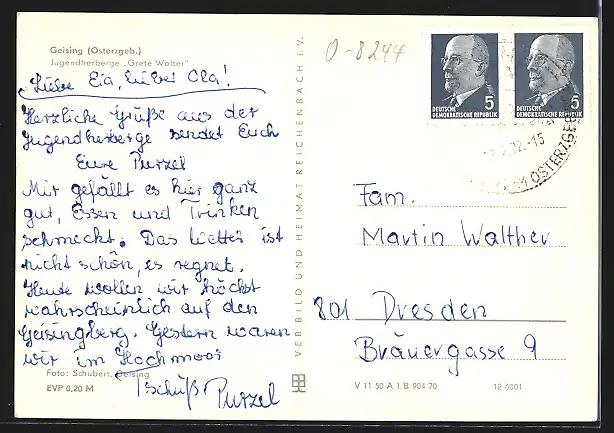 Geising (Osterzgeb.)
Jugendherberge „Grete Walter"
Liebe Eia, lieber Ola!
Herzliche Grüße aus der
Jugendherberge sendet Euch
Eure Purzel
Mir gefällt es hier ganz
gut, Essen und Trinken
schmeckt. Das Wetter ist
nicht schön, es regnet.
Heute wollen wir höchst
wahrscheinlich auf den
Geisingberg. Gestern waren
wir im Hochmoor
Tschüß Purzel
Foto: Schubert, Geising
EVP 0,20 M
VEB BILD UND HEIMAT REICHENBACH i. V.
0-8244
5
DEUTSCHE
DEMOKRATISCHE REPUBLIK
5
DEUTSCHE
DEMOKRATISCHE REPUBLIK
72.-15
OSTERZGEB
Fam.
Martin Walther
801 Dresden
Bräuergasse 9
V 11 50 A 1/B 904 70
12 6001